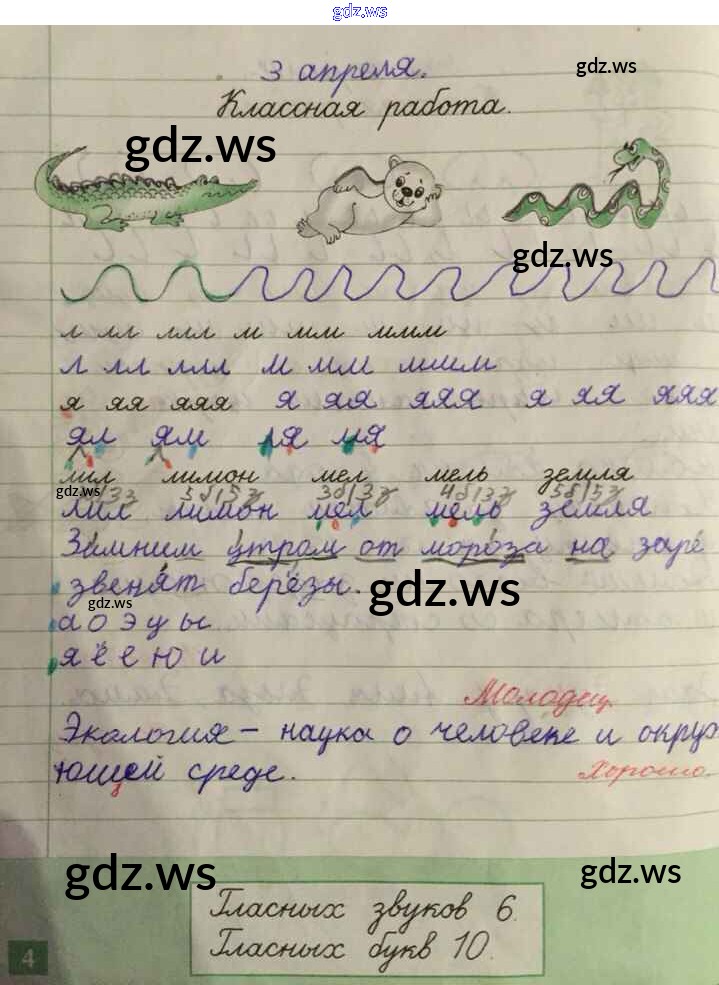 gdz.ws
3 апреля.
gdz.ws
Классная работа.
gdz.ws
gdz.ws
л лл ллл м мм ммм
л лл ллл м мм ммм
я яя яяя я яя яяя я яя яяя
ял ям ля мя
лил лимон мел мель земля
gdz.ws 3б/3з 5б/5з 3б/3з 4б/3з 5б/5з
лил лимон мел мель земля
Зимним утром от мороза на заре
звенят берёзы.
gdz.ws
gdz.ws
а о э у ы
я ё е ю и
Молодец
Экология – наука о человеке и окруж
ющей среде.
Хорошо.
gdz.ws
gdz.ws
Гласных звуков 6.
Гласных букв 10.
4